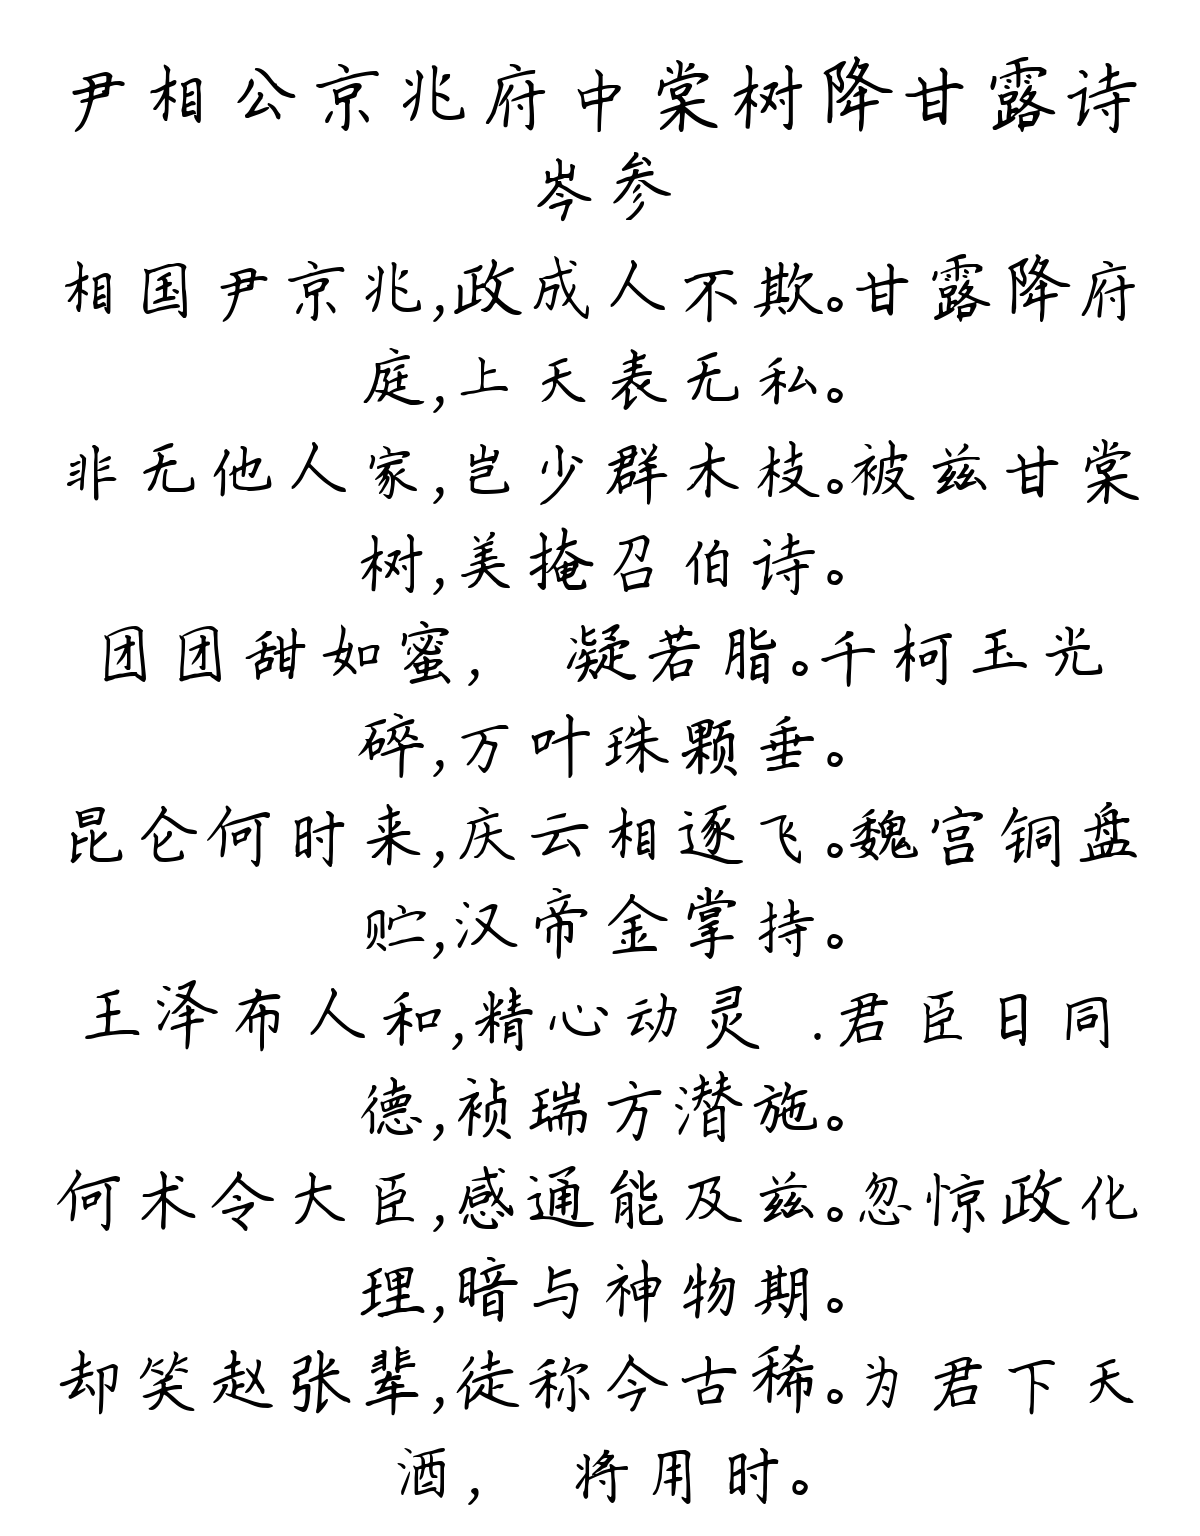 尹相公京兆府中棠树降甘露诗
岑参
相国尹京兆,政成人不欺。甘露降府
庭,上天表无私。
非无他人家,岂少群木枝。被兹甘棠
树,美掩召伯诗。
团团甜如蜜, 凝若脂。千柯玉光
碎,万叶珠颗垂。
昆仑何时来,庆云相逐飞。魏宫铜盘
贮,汉帝金掌持。
王泽布人和,精心动灵 .君臣日同
德,祯瑞方潜施。
何术令大臣,感通能及兹。忽惊政化
理,暗与神物期。
却笑赵张辈,徒称今古稀。为君下天
酒, 将用时。